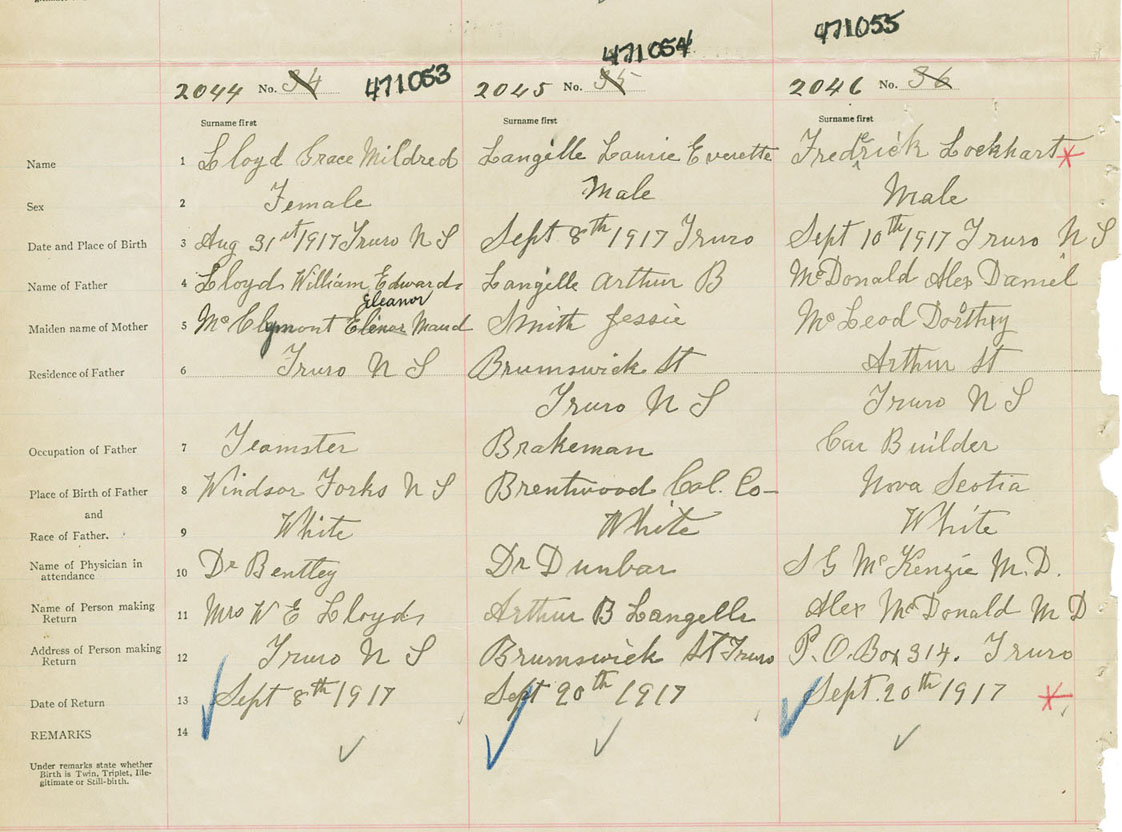 471053 471054 471055
2044 No. 34 2045 No. 35 2046 No. 36
Surname first Surname first Surname first
Name 1 Lloyd Grace Mildred Langille Laurie Everette Frederick Lockhart *
Sex 2 Female Male Male
Date and Place of Birth 3 Aug 31st 1917 Truro N S Sept 8th 1917 Truro Sept 10th 1917 Truro N S
Name of Father 4 Lloyds William Edwards Langille Arthur B McDonald Alex Daniel
Eleanor
Maiden name of Mother 5 McClymont Elinor Maud Smith Jessie McLeod Dorthy
Residence of Father 6 Truro N S Brumswick St Arthur St
Truro N S Truro N S
Occupation of Father 7 Teamster Brakeman Car Builder
Place of Birth of Father 8 Windsor Forks N S Brentwood Col. Co- Nova Scotia
and
Race of Father. 9 White White White
Name of Physician in
attendance 10 Dr Bentley Dr Dunbar S G McKenzie M.D.
Name of Person making
Return 11 Mrs W E Lloyds Arthur B Langille Alex McDonald M D
Address of Person making
Return 12 Truro N S Brumswick St Truro P.O. Box 314. Truro
Date of Return 13 Sept 8th 1917 Sept 20th 1917 Sept. 20th 1917 *
REMARKS 14
Under remarks state whether
Birth is Twin, Triplet, Ille-
gitimate or Still-birth.